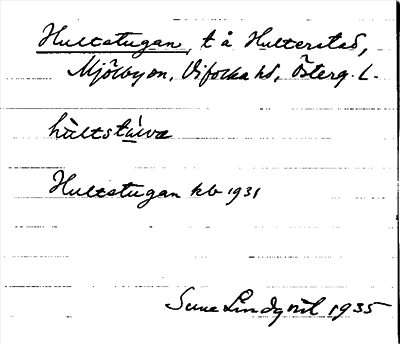 Hultstugan, t å Hulterstad,
Mjölby sn, Vifolka hd, Österg. L.
hùltstúwa
Hultstugan kb 1931
Sune Lindqvist 1935